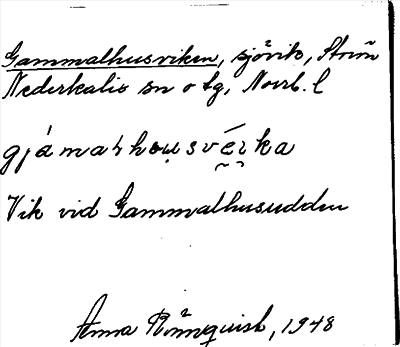 Gammalhusviken, sjövik, Storön
Nederkalix sn o tg, Norrb. l
gjámaɳhou̯své̮ɪ̯ka
Vik vid Gammalhusudden
Anna Rönnquist, 1948